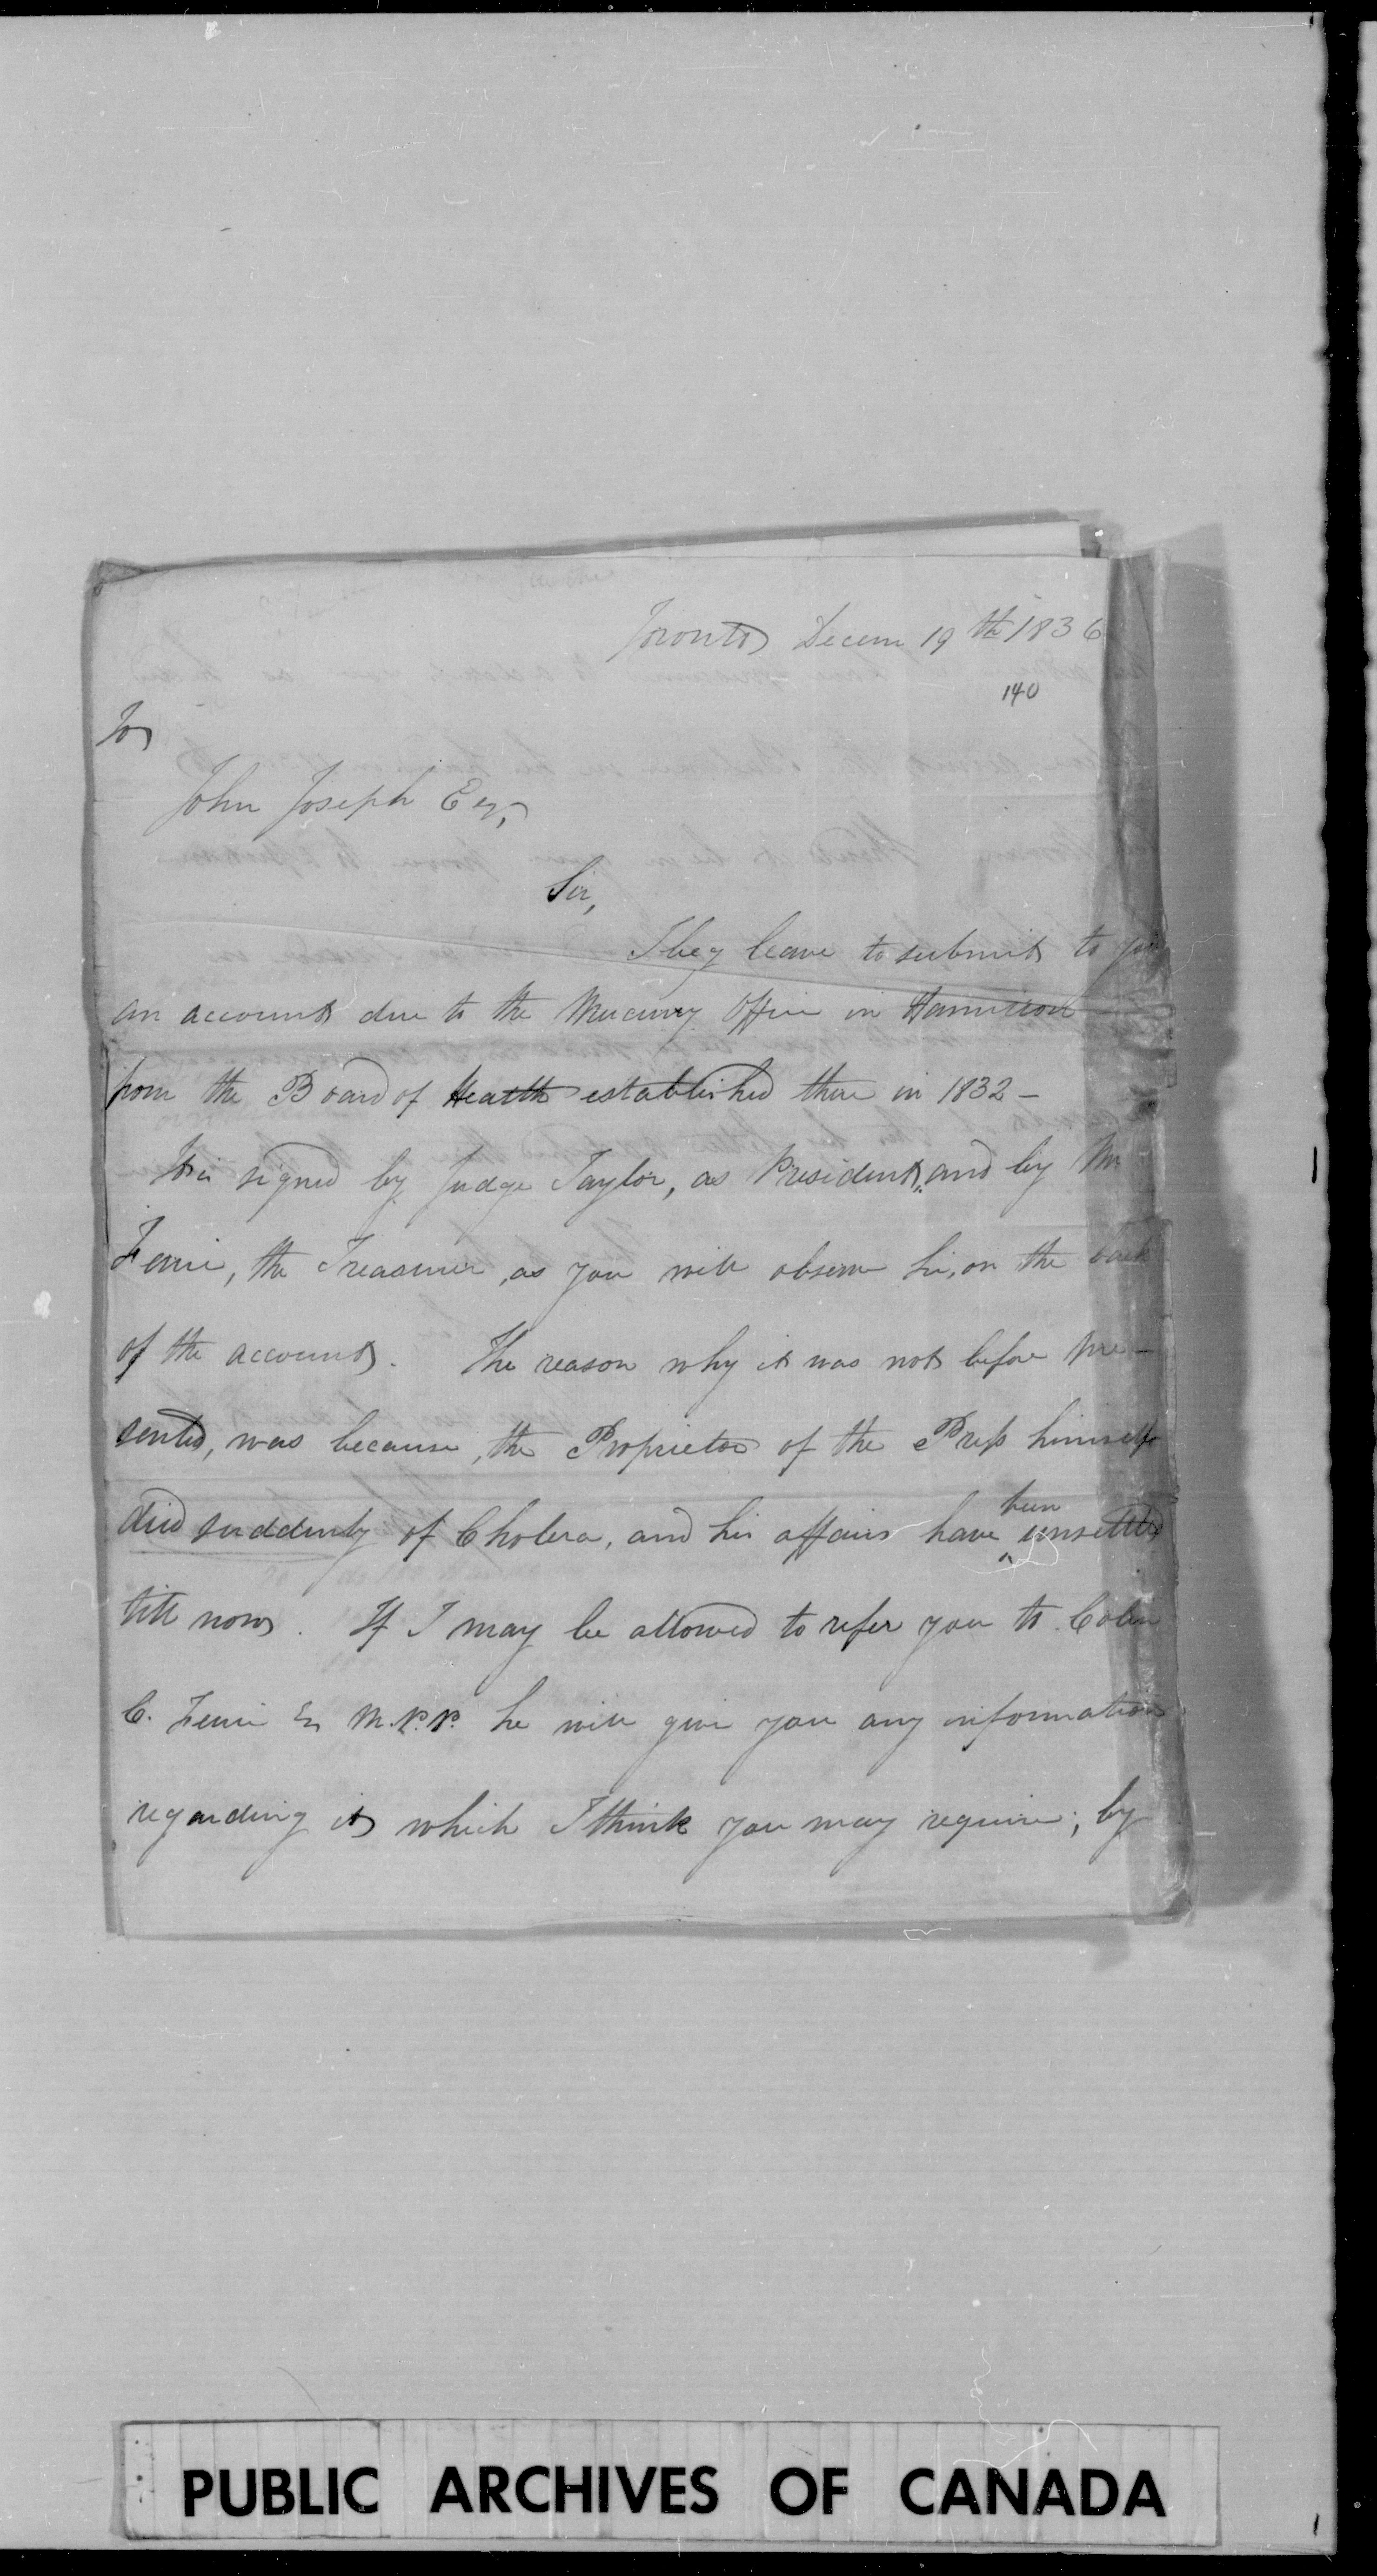 Toronto Decem 19th 1836
140
To
John Joseph Esq,
Sir,
I beg leave to submit to you
an account due to the Mercury Office in Hamilton
from the Board of Health established there in 1832 –
It is signed by Judge Taylor, as President, and by Mr
Ferrie, the Treasurer, as you will observe Sir, on the back
of the account. The reason why it was not before pre–
sented, was because, the Proprietor of the Press himself
died suddenly of Cholera, and his affairs have been unsettled
till now. If I may be allowed to refer you to Colin
C. Ferrie Esq M.P.P. he will give you any information
regarding it which I think you may require; by
PUBLIC ARCHIVES OF CANADA